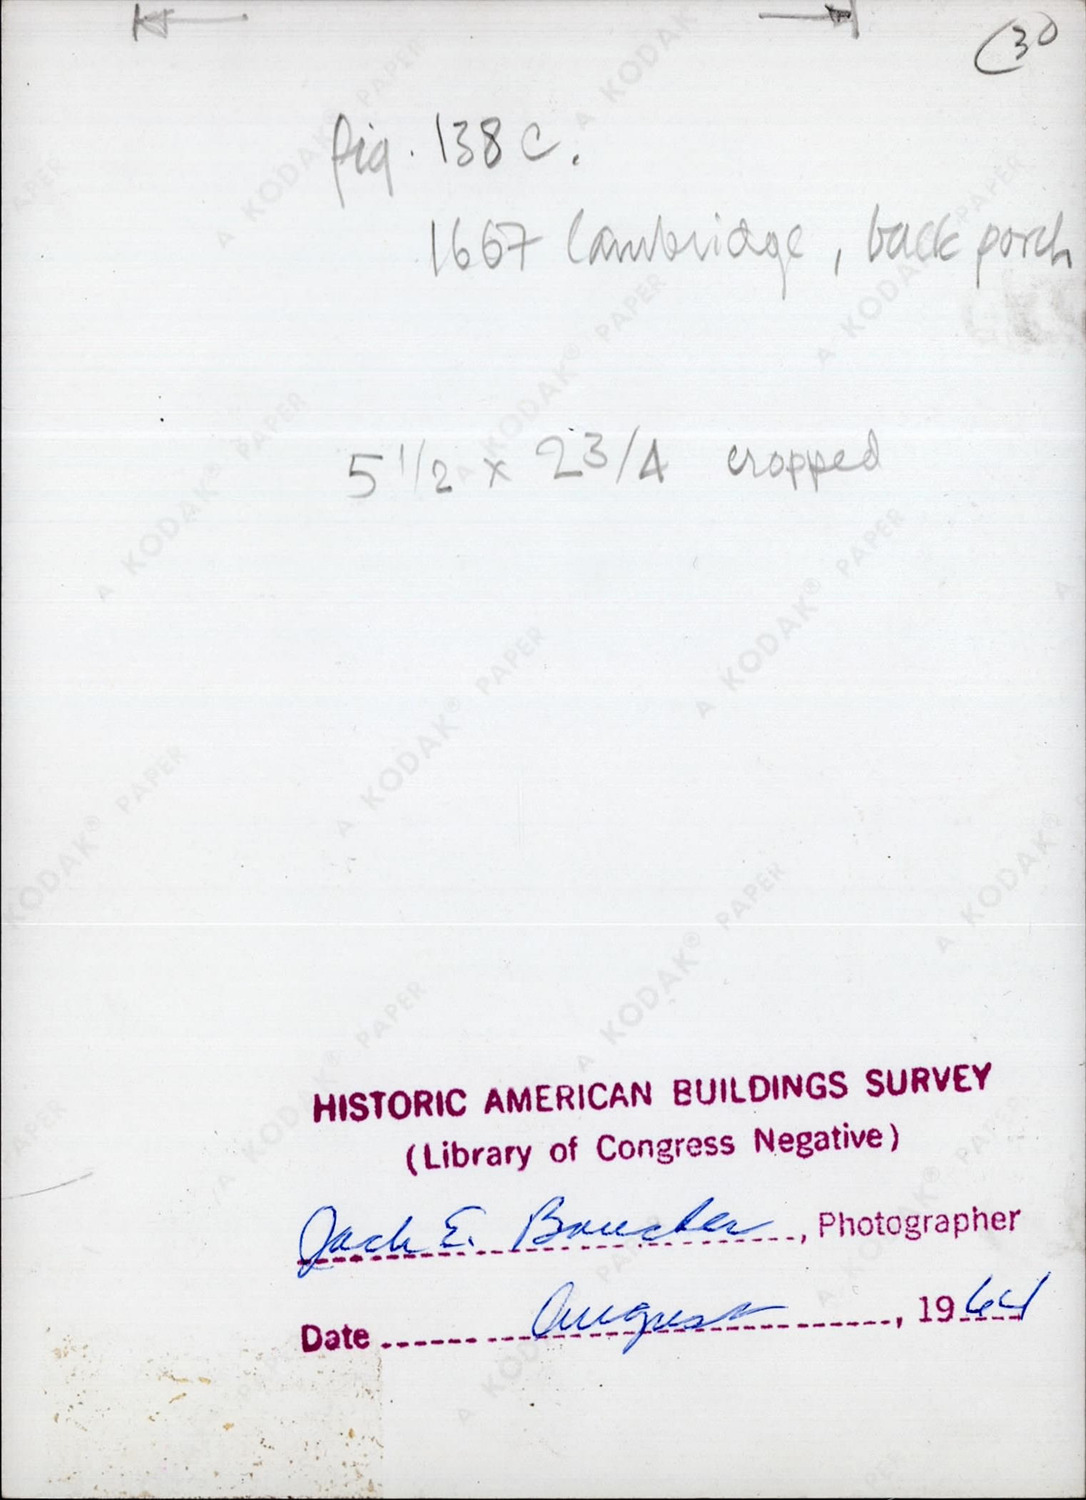 30
fig. 138 c.
1667 Cambridge, back porch
5 1/2 x 2 3/4 cropped
HISTORIC AMERICAN BUILDINGS SURVEY
(Library of Congress Negative)
Jack E. Boucher, Photographer
Date August, 1964
A KODAK® PAPER